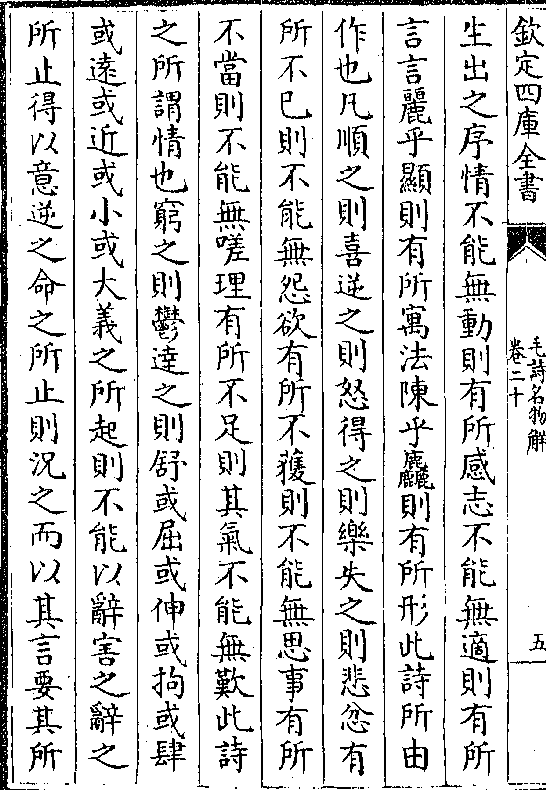 欽定四庫全書
毛詩名物解
卷二十
五
生出之序情不能無動則有所感志不能無適則有所
言言麗乎顯則有所寓法陳乎麤則有所形此詩所由
作也凡順之則喜逆之則怒得之則樂失之則悲忿有
所不已則不能無怨欲有所不獲則不能無思事有所
不當則不能無嗟理有所不足則其氣不能無歎此詩
之所謂情也窮之則鬱達之則舒或屈或伸或拘或肆
或遠或近或小或大義之所起則不能以辭害之辭之
所止得以意逆之命之所止則況之而以其言要其所